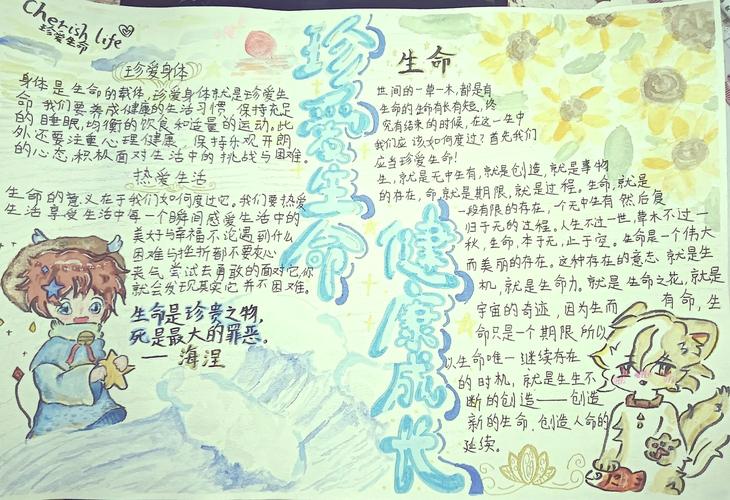 Cherish life
珍爱生命
珍爱身体
身体是生命的载体,珍爱身体就是珍爱生
命,我们要养成健康的生活习惯,保持充足
的睡眠,均衡的饮食和适量的运动。此
外还要注重心理健康,保持乐观开朗
的心态,积极面对生活中的挑战与困难。
热爱生活
生命的意义在于我们如何度过它。我们要热爱
生活享受生活中每一个瞬间感爱生活中的
美好与幸福不论遇到什么
困难与挫折都不要灰心
丧气尝试去勇敢的面对它你
就会发现其实它并不困难。
生命是珍贵之物,
死是最大的罪恶。
——海涅
珍爱生命
健康成长
生命
世间的一草一木,都是有
生命的生命有长有短,终
究有结束的时候,在这一生中
我们应该如何度过?首先我们
应当珍爱生命!
生,就是无中生有,就是创造,就是事物
的存在,命,就是期限,就是过程。生命,就是
一段有限的存在,一个无中生有然后复
归于无的过程。人生不过一世,草木不过一
秋,生命,本于无,止于空。生命是一个伟大
而美丽的存在。这种存在的意志,就是生
机,就是生命力。就是生命之花,就是
宇宙的奇迹,因为生而有命,生
命只是一个期限所以
以生命唯一继续存在
的时机,就是生生不
断的创造——创造
新的生命,创造人命的
延续。